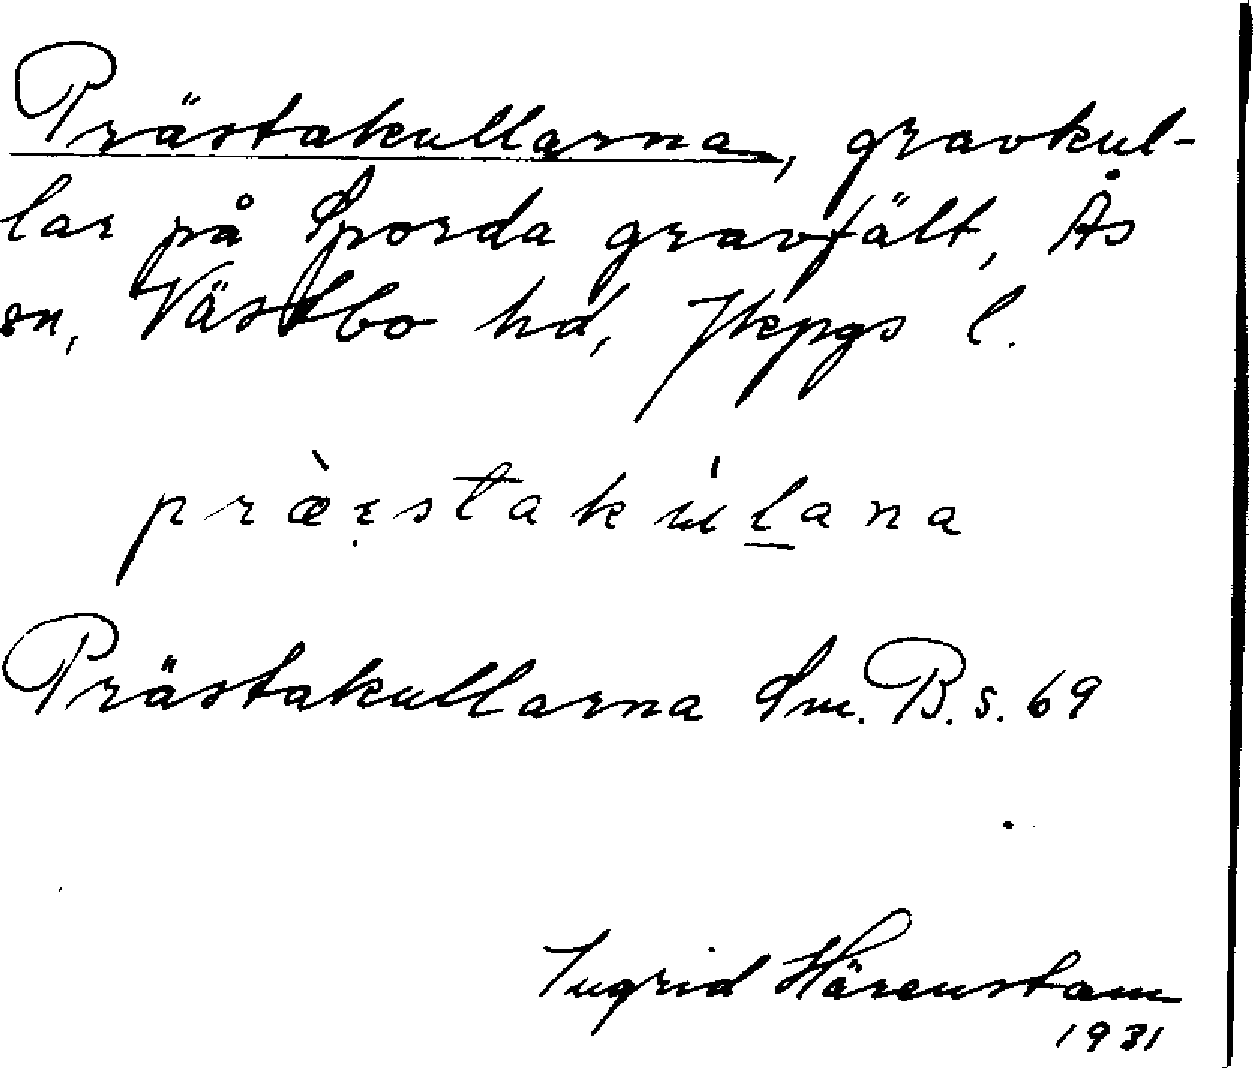 Prästakullarna, gravkul-
lar på Sporda gravfält, Ås
sn, Västbo hd, Jkpgs l.
præ̀ɛ̣stakúl̲ana
Prästakullarna Sm. B. s. 69
Ingrid Härenstam
1931